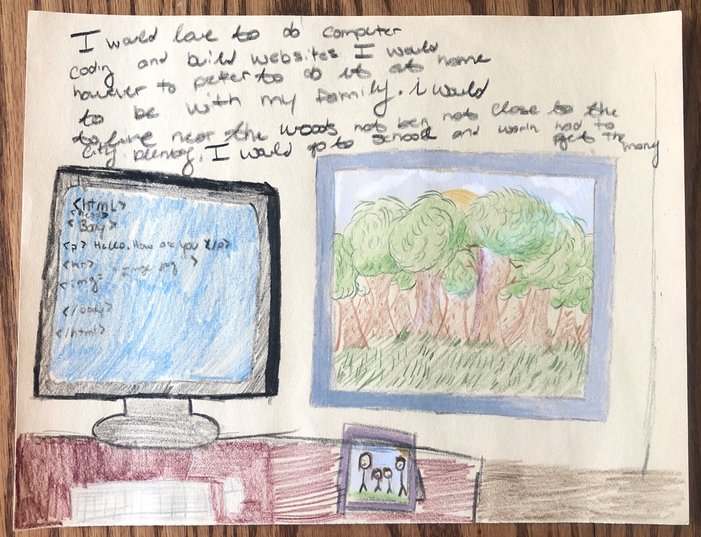 I would love to do computer
coding and build websites I would
however to prefer to do it at home
to be with my family. I would
to live near the woods not ben not close to the
city. I would go to school and work had to get the money
<Html>
<Body>
<p> Hello. How are you </p>
<hr>
<img=
</body>
</html>